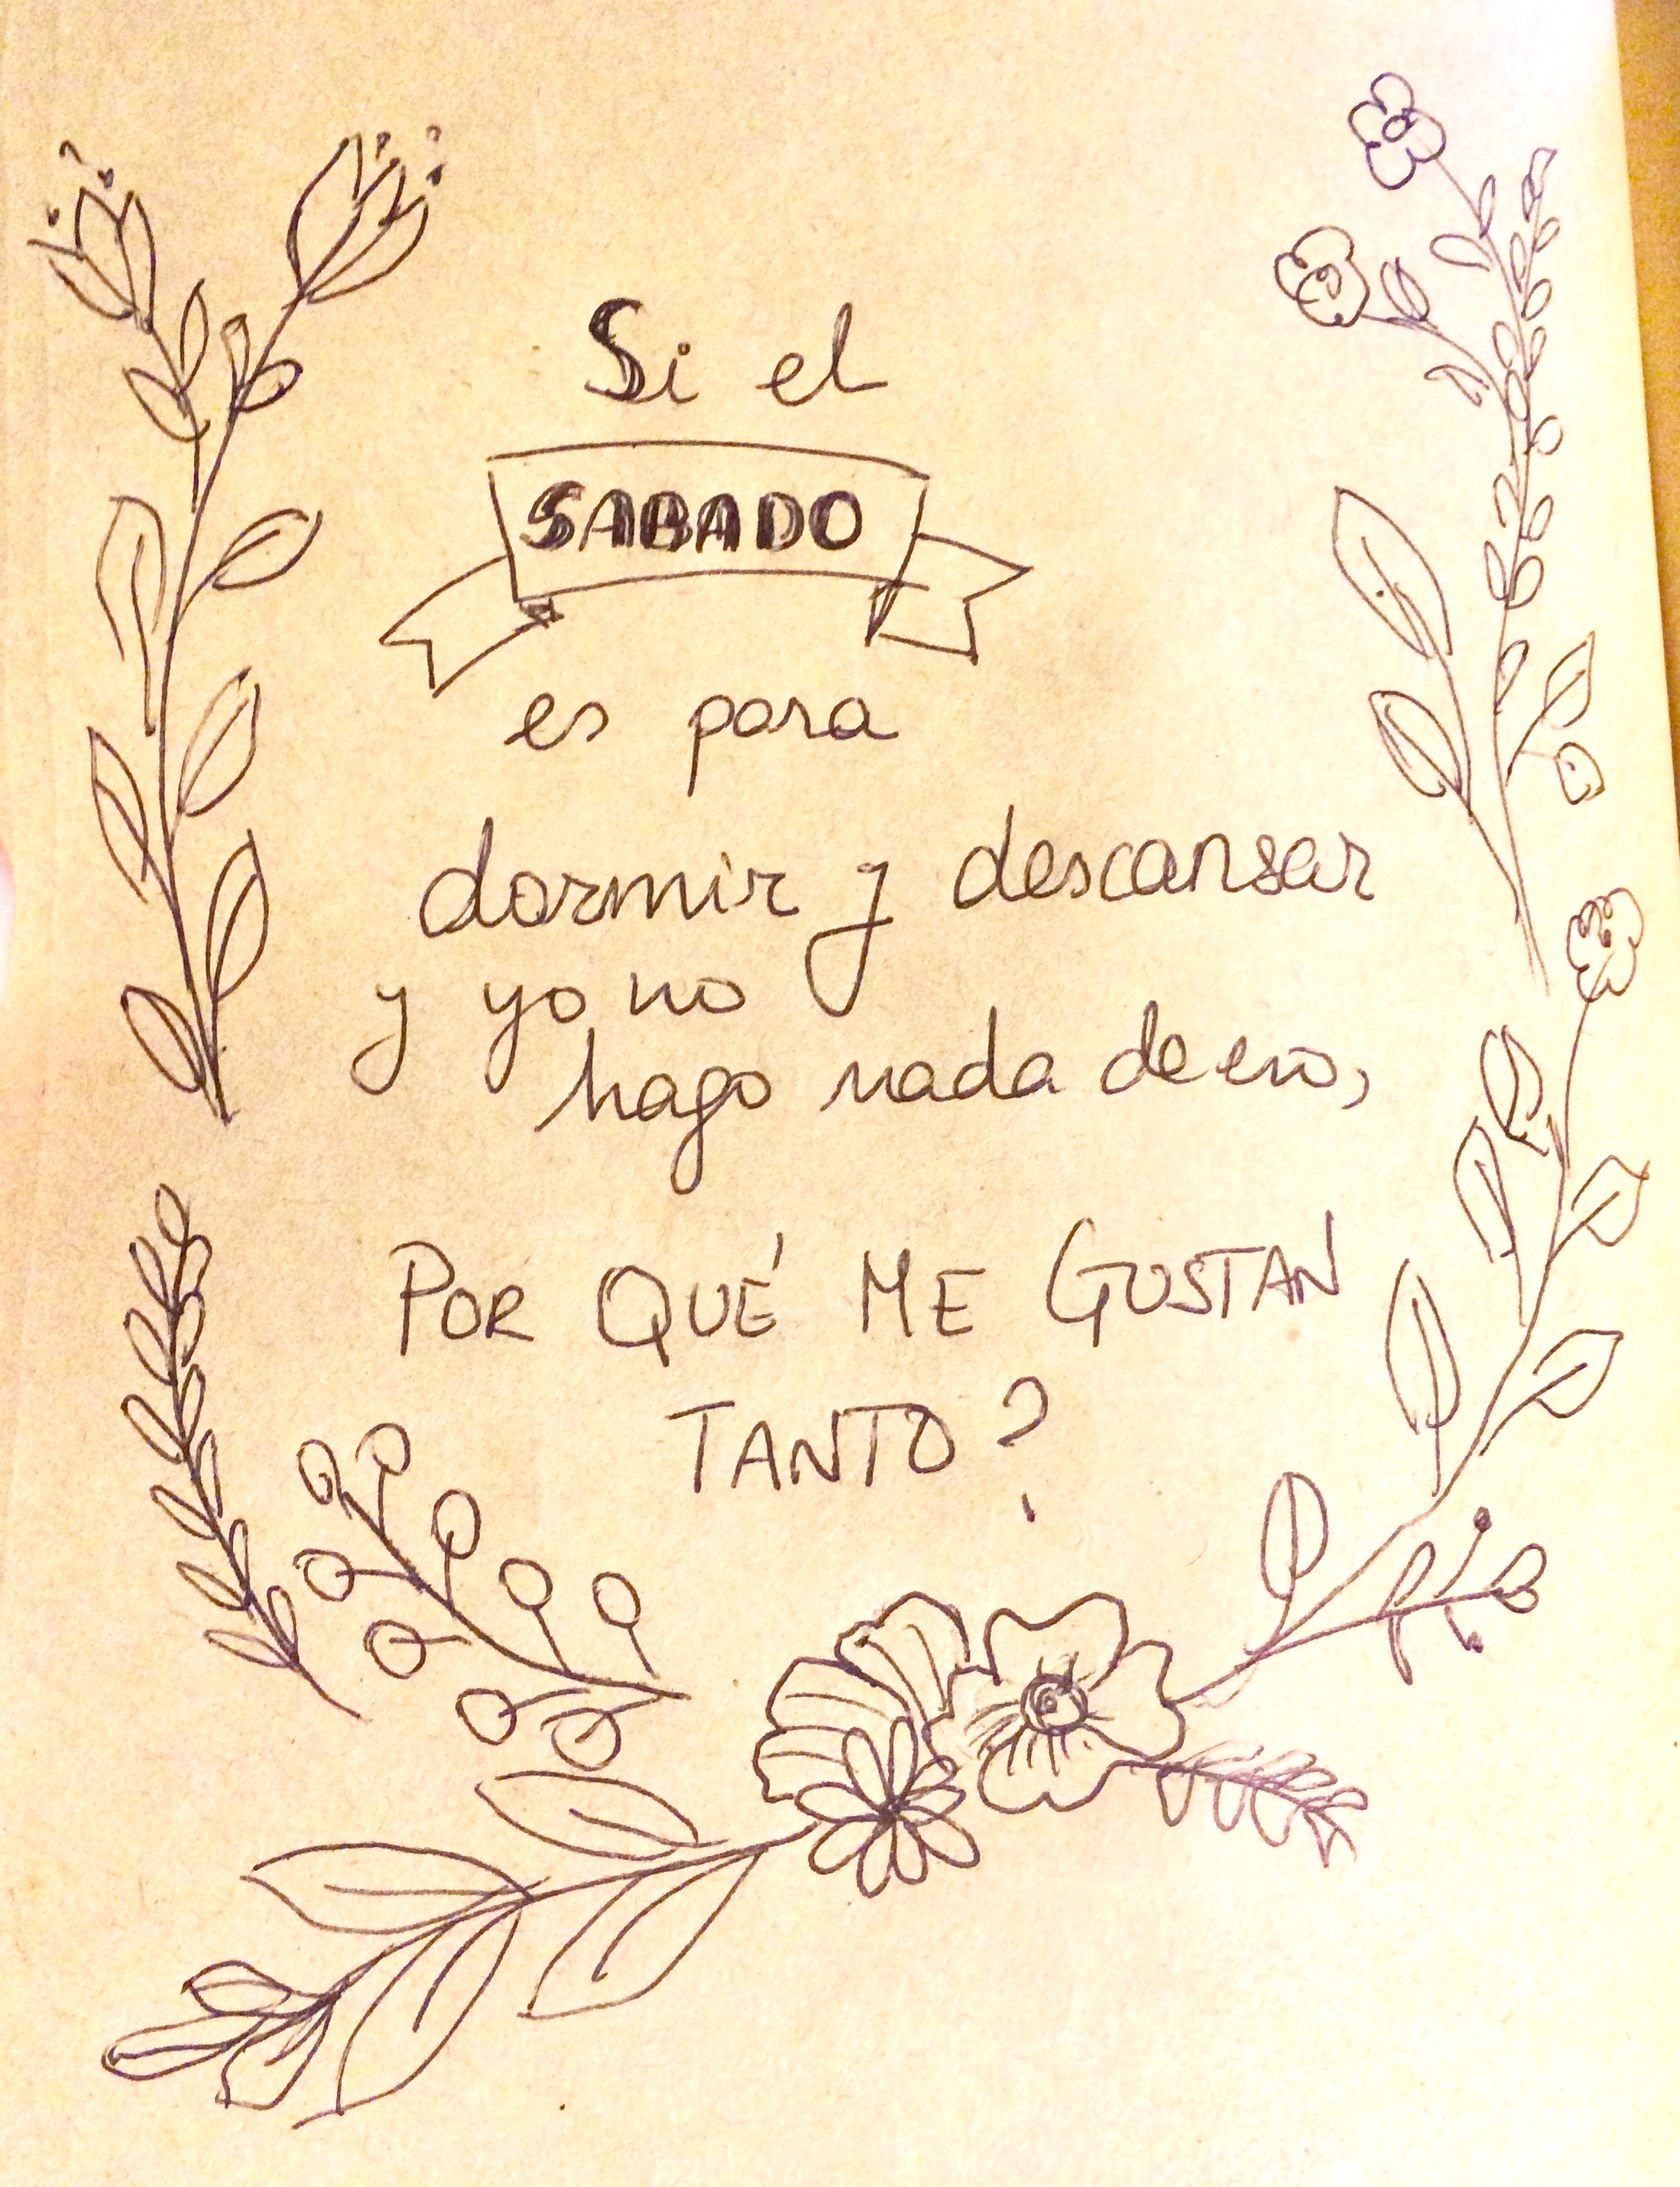 Si el
SABADO
es para
dormir y descansar
y yo no
hago nada de eso,
POR QUÉ ME GUSTAN
TANTO?